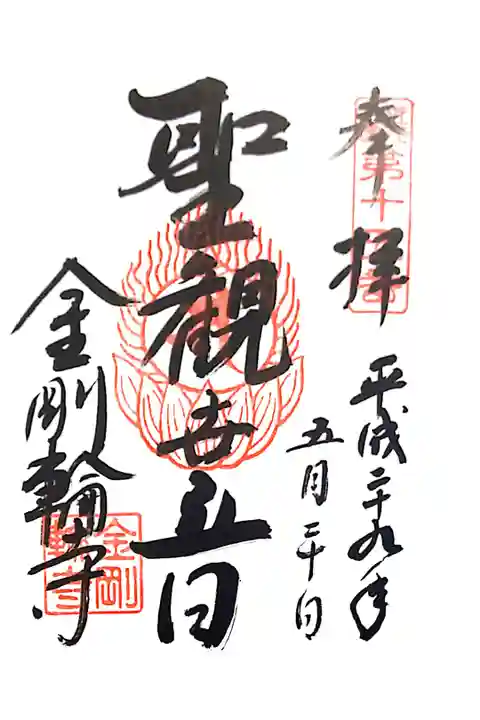 奉拝
平成二十九年
五月三十日
聖観世音
金剛輪寺
金剛
輪寺